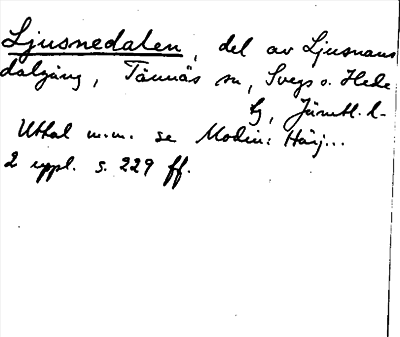 Ljusnedalen, del av Ljusnans
dalgång, Tännäs sn, Svegs o. Hede
tg, Jämtl. l-
Uttal m.m. se Modin: Härj...
2 uppl. s. 229 ff.